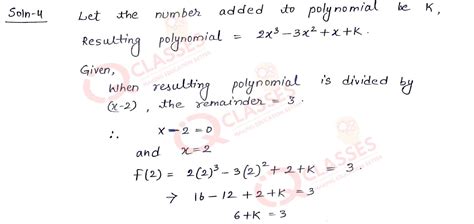 Soln-4 Let the number added to polynomial be K,
Resulting polynomial = 2x³-3x²+x+K.
Given,
When resulting polynomial is divided by
(x-2), the remainder = 3.
∴ x-2=0
and x=2
f(2) = 2(2)³-3(2)²+2+K = 3.
→ 16-12+2+K=3
6+K=3